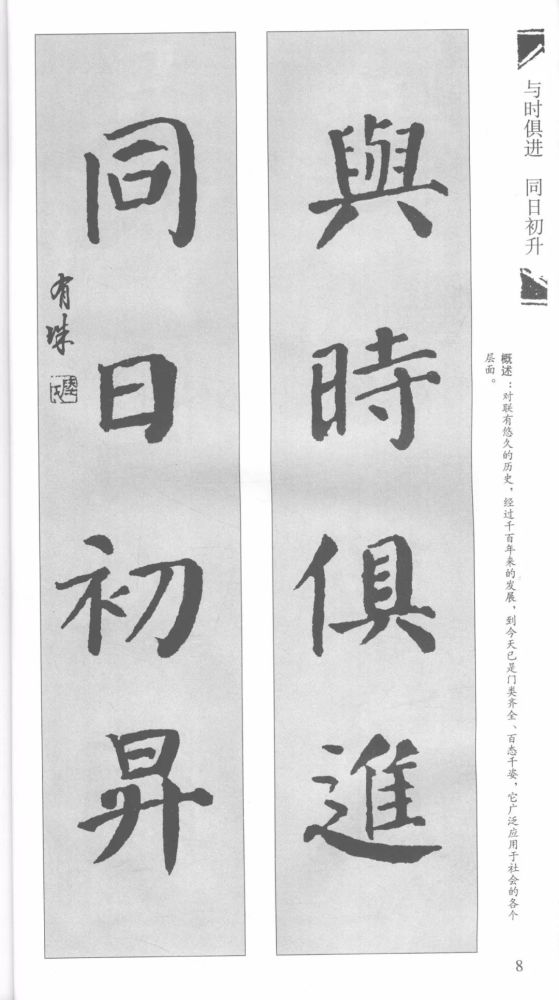 与时俱进 同日初升
概述：对联有悠久的历史，经过千百年来的发展，到今天已是门类齐全、百态千姿，它广泛应用于社会的各个
层面。
與時俱進
同日初昇
有珠
8